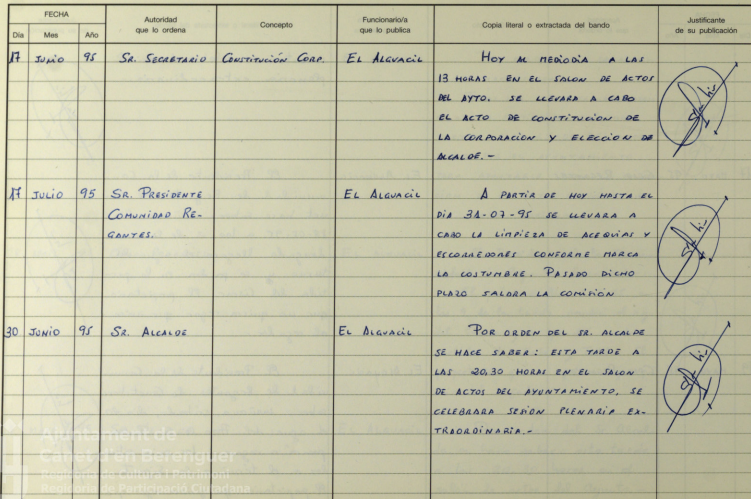 FECHA
Autoridad que lo ordena
Concepto
Funcionario/a que lo publica
Copia literal o extractada del bando
Justificante de su publicación
Día Mes Año
17 JUNIO 95 SR. SECRETARIO CONSTITUCIÓN CORP. EL ALGUACIL HOY AL MEDIODIA A LAS
13 HORAS EN EL SALON DE ACTOS
DEL AYTO. SE LLEVARA A CABO
EL ACTO DE CONSTITUCION DE
LA CORPORACION Y ELECCION DE
ALCALDE.-
17 JULIO 95 SR. PRESIDENTE EL ALGUACIL A PARTIR DE HOY HASTA EL
COMUNIDAD RE- DIA 31-07-95 SE LLEVARA A
GANTES. CABO LA LIMPIEZA DE ACEQUIAS Y
ESCORREDORES CONFORME MARCA
LA COSTUMBRE. PASADO DICHO
PLAZO SALDRA LA COMISIÓN
30 JUNIO 95 SR. ALCALDE EL ALGUACIL POR ORDEN DEL SR. ALCALDE
SE HACE SABER: ESTA TARDE A
LAS 20,30 HORAS EN EL SALON
DE ACTOS DEL AYUNTAMIENTO, SE
CELEBRARA SESIÓN PLENARIA EX-
TRAORDINARIA.-
Ajuntament de
Canet d'en Berenguer
Regidoria de Cultura i Patrimoni
Regidoria de Participació Ciutadana